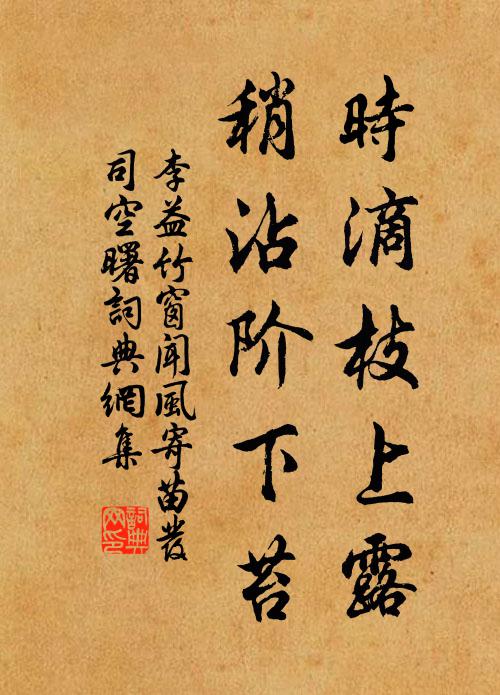 時滴枝上露
稍沾阶下苔
李益竹窗聞風寄苗發
司空曙詞典網集
詞典網印